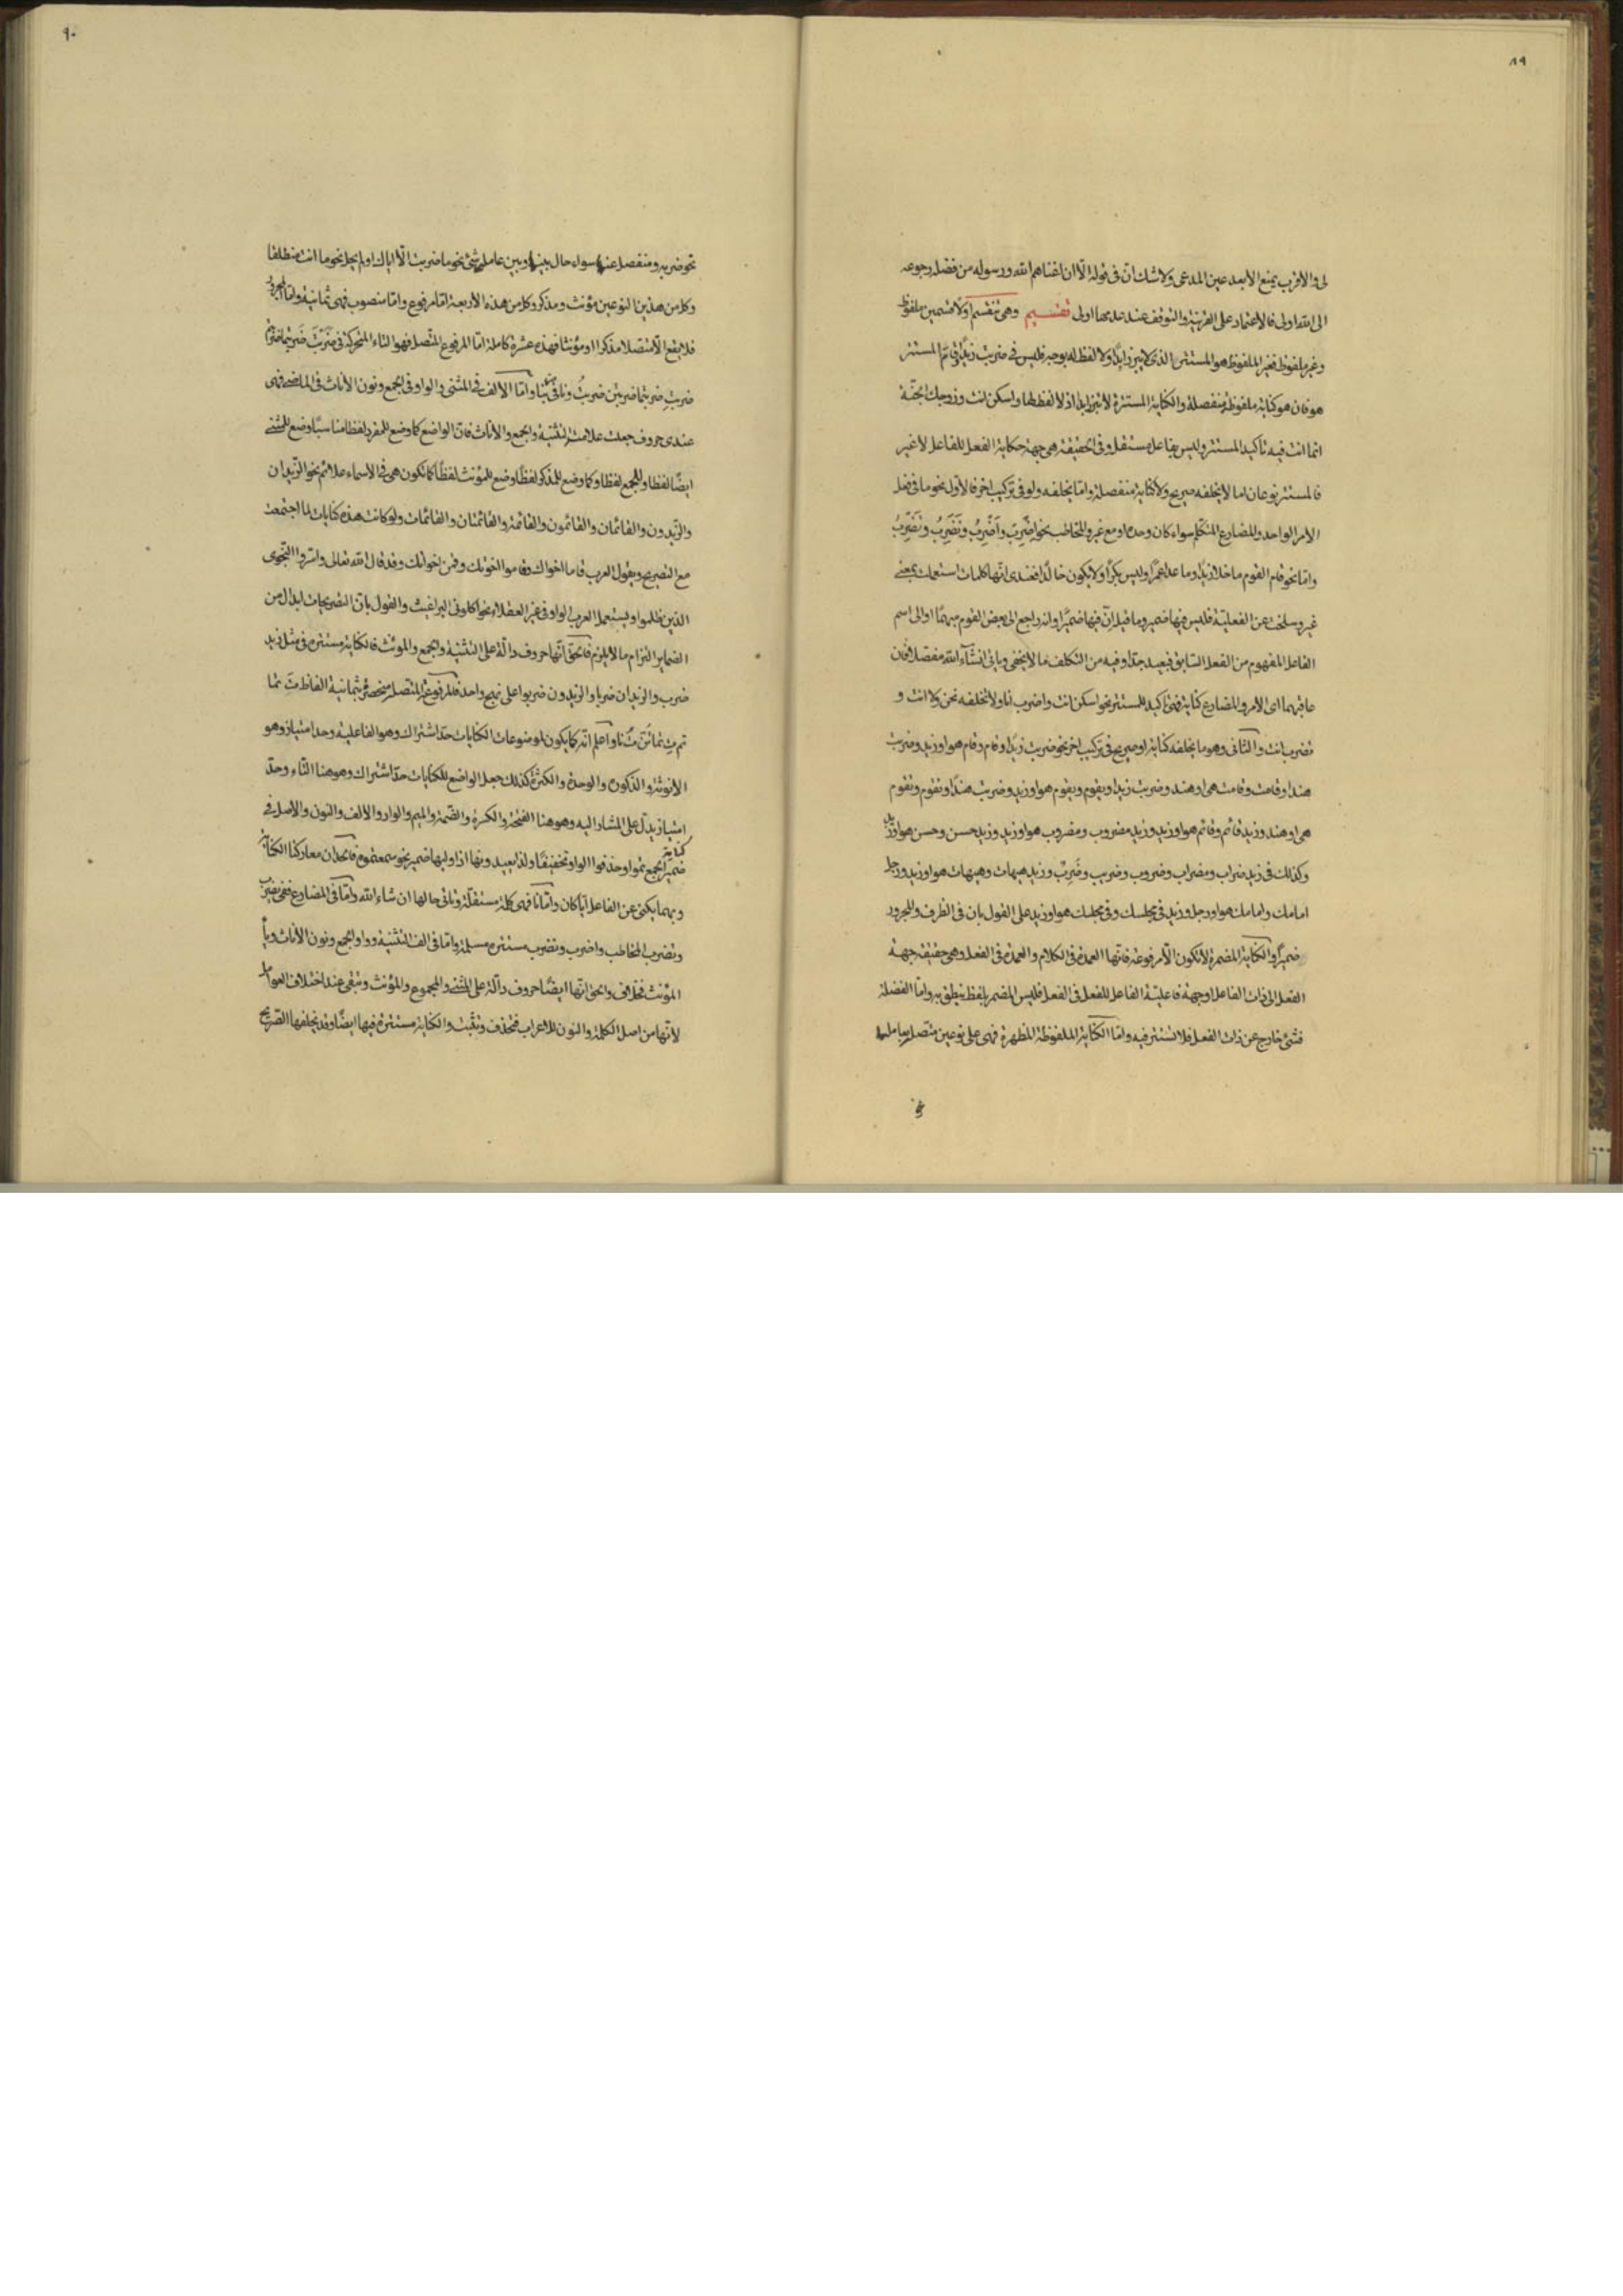 ٨٩
لى والاقرب يمنع الأبعد عين المدعى ولا شك ان فى قوله الّا ان اغناهم الله ورسوله من فضله رجوعه
الى الله اولى فالاعتماد على القرينة والتوقف عند عدمها اولى تقسيم وهى تنقسم اولا قسمين ملفوظ
وغير ملفوظ فغير الملفوظ هو المستتر الذى لا يبرز ابدًا ولا لفظ له بوجه فليس فى ضربت زيدًا ثم المستتر
هو فان هو كناية ملفوظة منفصلة والكناية المستترة لا تبرز ابدا اذ لا لفظ لها واسكن انت وزوجك الجنّة
انما انت فيه تأكيد المستتر وليس بفاعل مستقل وفى الحقيقة هى جهة حكاية الفعل للفاعل لا غير
فالمستتر نوعان اما لا يخلفه صريح ولا كناية منفصلة واما يخلفه ولو فى تركيب اخر فالاول نحو ما فى فعل
الأمر الواحد والمضارع المتكلم سواء كان وحده او مع غيره والمخاطب نحو اضرِب واَضرِبُ ونَضرِبُ وتَضرِبُ
واما نحو قام القوم ما خلا زيدًا وما عدا عمرًا وليس بكرًا ولا يكون خالدًا فعندى انها كلمات استعملت بمعنى
غير وسلخت عن الفعلية فليس فيها ضمير وما قيل انّ فيها ضميرًا وانه راجع الى بعض القوم مبهمًا او الى اسم
الفاعل المفهوم من الفعل السابق فبعيد جدًا وفيه من التكلف ما لا يخفى ويأتى انشآء الله مفصلا فان
عاقبهما اى الامر والمضارع كناية فهى تاكيد للمستتر نحو اسكن انت واضرب انا ولا تخلفه نحن ولا انت و
تضرب انت والثانى وهو ما يخلفه كناية او صريح فى تركيب اخر نحو ضربت زيدًا وقام وقام هو او زيد وضربت
هندا وقامت وقامت هى او هند وضربت زيدا ويقوم ويقوم هو او زيد وضربت هندًا وتقوم وتقوم
هى او هند وزيد قائم وقائم هو او زيد وزيد مضروب ومضروب هو او زيد وزيد حسن وحسن هو او زيد
وكذلك فى زيد ضراب ومضراب وضروب وضريب وضَرِبٌ وزيد هيهات وهيهات هو او زيد ورجل
امامك وامامك هو او رجل وزيد فى مجلسك وفى مجلسك هو او زيد على القول بان فى الظرف والمجرور
ضميرًا والكناية المضمرة لا تكون الّا مرفوعة فانها العمدة فى الكلام والعمدة فى الفعل وهى حقيقة جهة
الفعل الى ذات الفاعل او جهة فاعلية الفاعل للفعل فى الفعل فليس المضمر بلفظ ينطق به واما الفضلة
فشئ خارج عن ذات الفعل فلا تستتر فيه واما الكناية الملفوظة المظهرة فهى على نوعين متصل بعاملها
٩٠
نحو ضربه ومنفصل عنها سواء حال بينها وبين عاملها شئ نحو ما ضربت الّا اياك او لم يحل نحو ما انت منطلقا
وكل من هذين النوعين مؤنث ومذكر وكل من هذه الأربعة اما مرفوع واما منصوب فهى ثمانية واما المجرور
فلا يقع الّا متصلا مذكرا او مؤنثا فهذه عشرة كاملة امّا المرفوع المتصل فهو التاء المتحركة فى ضربتَ ضربتما ضربتم
ضربتِ ضربتما ضربتن ضربتُ ونا فى ضربنا واما الألف فى المثنى والواو فى الجمع ونون الأناث فى الماضى فهى
عندى حروف جعلت علامت التثنية والجمع والأناث فان الواضع كما وضع للمفرد لفظا مناسبًا وضع للمثنى
ايضًا لفظا وللجمع لفظا وكما وضع للمذكر لفظًا وضع للمؤنث لفظًا كما تكون هى فى الاسماء علائم نحو الزيدان
والزيدون والقائمان والقائمون والقائمة والقائمتان والقائمات ولو كانت هذه كنايات لما اجتمعت
مع التصريح ويقول العرب قاما اخواك وقاموا اخوتك وقمن اخواتك وقد قال الله تعالى واسرّوا النجوى
الذين ظلموا ويستعمل العرب الواو فى غير العقلاء نحو اكلونى البراغيث والقول بان التصريحات ابدال من
الضماير التزام ما لا يلزم فالحق انها حروف دالّة على التثنية والجمع والمؤنث فالكناية مستترة فى مثل زيد
ضرب والزيدان ضربا والزيدون ضربوا على نهج واحد فالمرفوع المتصل منحصر بثمانية الفاظ تَ تما
تم تِ تما تُنّ تُ نا واعلم انه كما يكون لموضوعات الكنايات حدّ اشتراك وهو الفاعلية وحد امتياز وهو
الانوثة والذكورة والوحدة والكثرة كذلك جعل الواضع للكنايات حدّ اشتراك وهو هنا التاء وحدّ
امتياز يدل على المشار اليه وهو هنا الفتحة والكسرة والضمة والميم والواو والالف والنون والاصل فى
ضمير الجمع تمو او حذفوا الواو تخفيفًا ولذا يعيدونها اذا وليها ضمير نحو سمعتموه
وبهما يكنى عن الفاعل ايا كان واما نا فهى كلمة مستقلة وتاتى حالها ان شاء الله واما فى المضارع ففى يضرب
وتضرب المخاطب واضرب ونضرب مستترة مسلمة واما فى الف التثنية وواو الجمع ونون الأناث وياء
المؤنث فخلاف والحق انها ايضًا حروف دالّة على المثنى والمجموع والمؤنث وتبقى عند اختلاف العوامل
لانها من اصل الكلمة والنون للاعراب فتحذف وتثبت والكناية مستترة فيها ايضًا وقد يخلفها الصريح